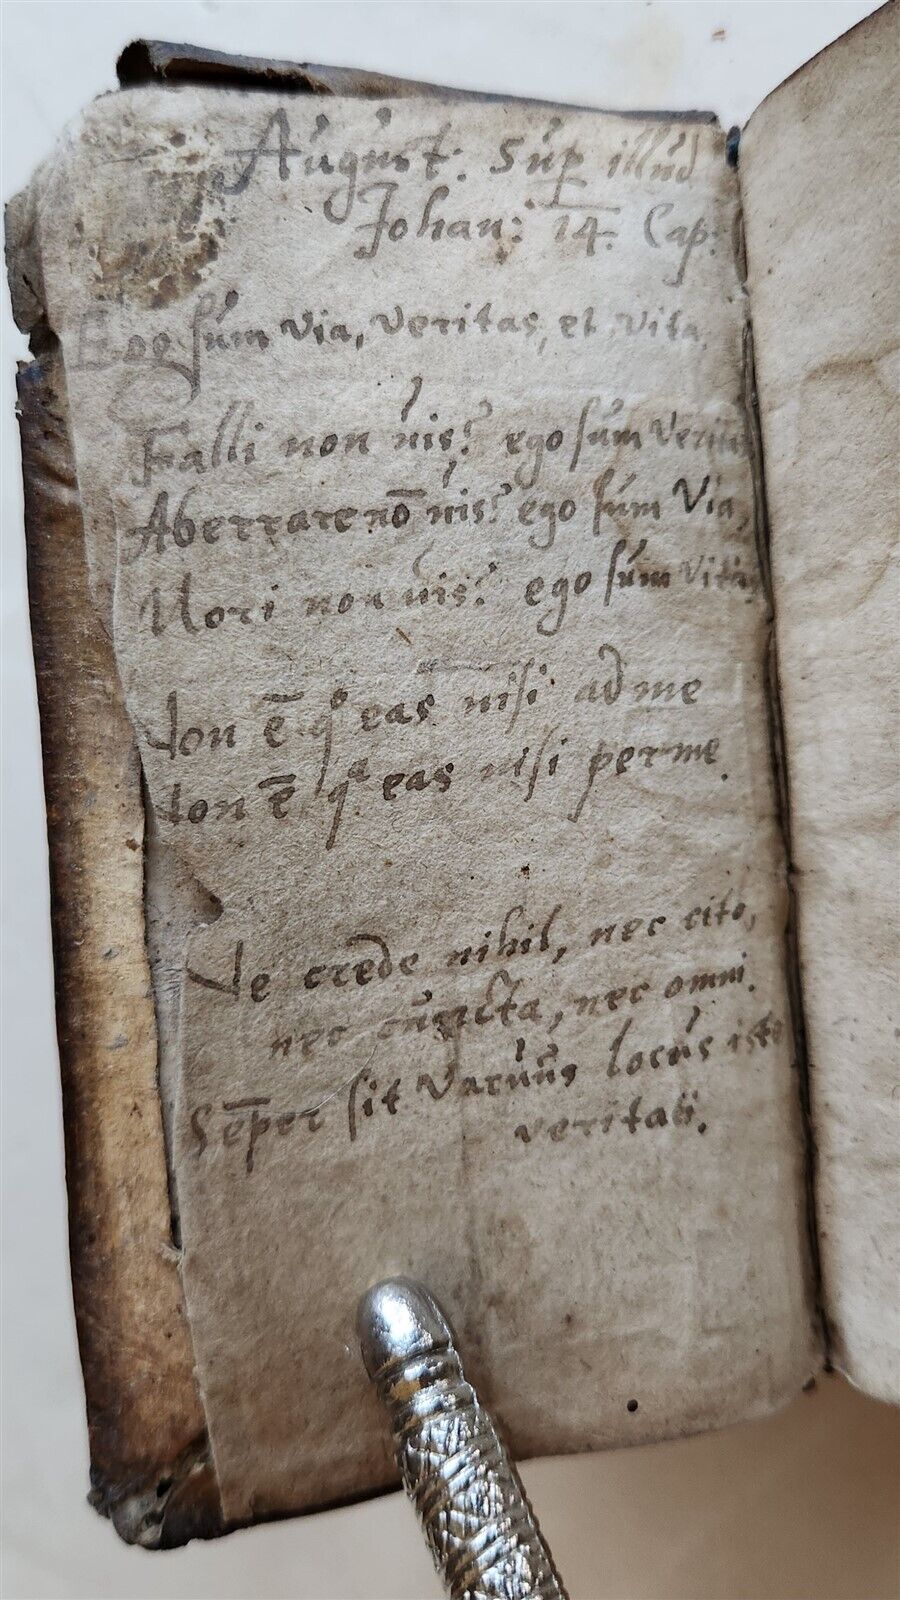 August: Sup illud
Johan: 14. Cap:
Ego sum via, veritas, et vita.
Falli non uis? ego sum Veritas
Aberrare nō uis? ego sum Via,
Mori non uis? ego sum Vita,
Non ē qͦ eas nisi ad me
Non ē qᵃ eas nisi per me.
Ne crede nihil, nec cito,
nec cuncta, nec omni.
Sēper sit Vacuus locus isto
veritati.